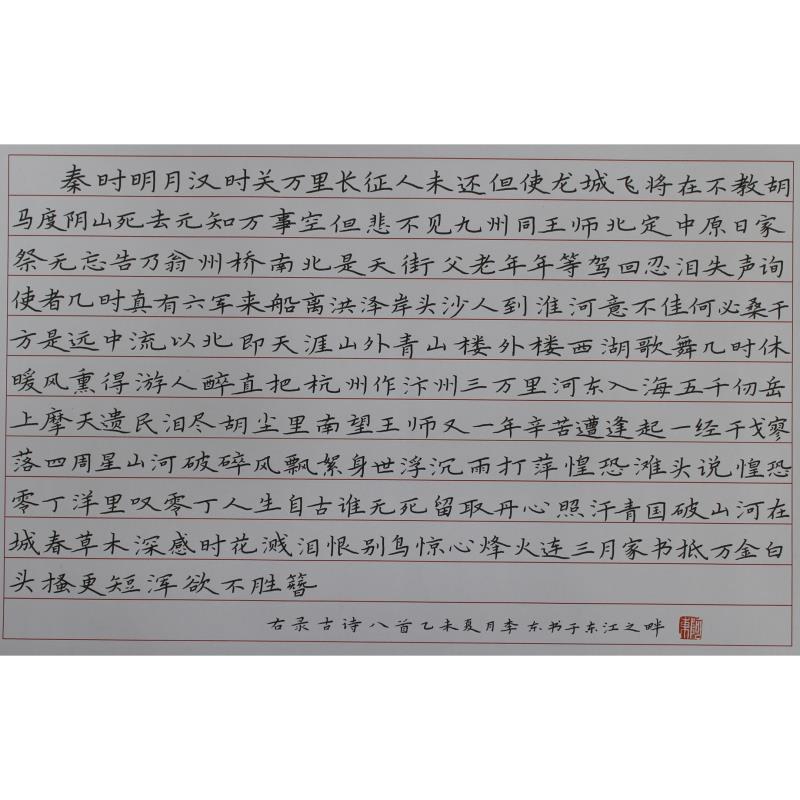 秦时明月汉时关万里长征人未还但使龙城飞将在不教胡
马度阴山死去元知万事空但悲不见九州同王师北定中原日家
祭无忘告乃翁州桥南北是天街父老年年等驾回忍泪失声询
使者几时真有六军来船离洪泽岸头沙人到淮河意不佳何必桑干
方是远中流以北即天涯山外青山楼外楼西湖歌舞几时休
暖风熏得游人醉直把杭州作汴州三万里河东入海五千仞岳
上摩天遗民泪尽胡尘里南望王师又一年辛苦遭逢起一经干戈寥
落四周星山河破碎风飘絮身世浮沉雨打萍惶恐滩头说惶恐
零丁洋里叹零丁人生自古谁无死留取丹心照汗青国破山河在
城春草木深感时花溅泪恨别鸟惊心烽火连三月家书抵万金白
头搔更短浑欲不胜簪
右录古诗八首乙未夏月李东书于东江之畔